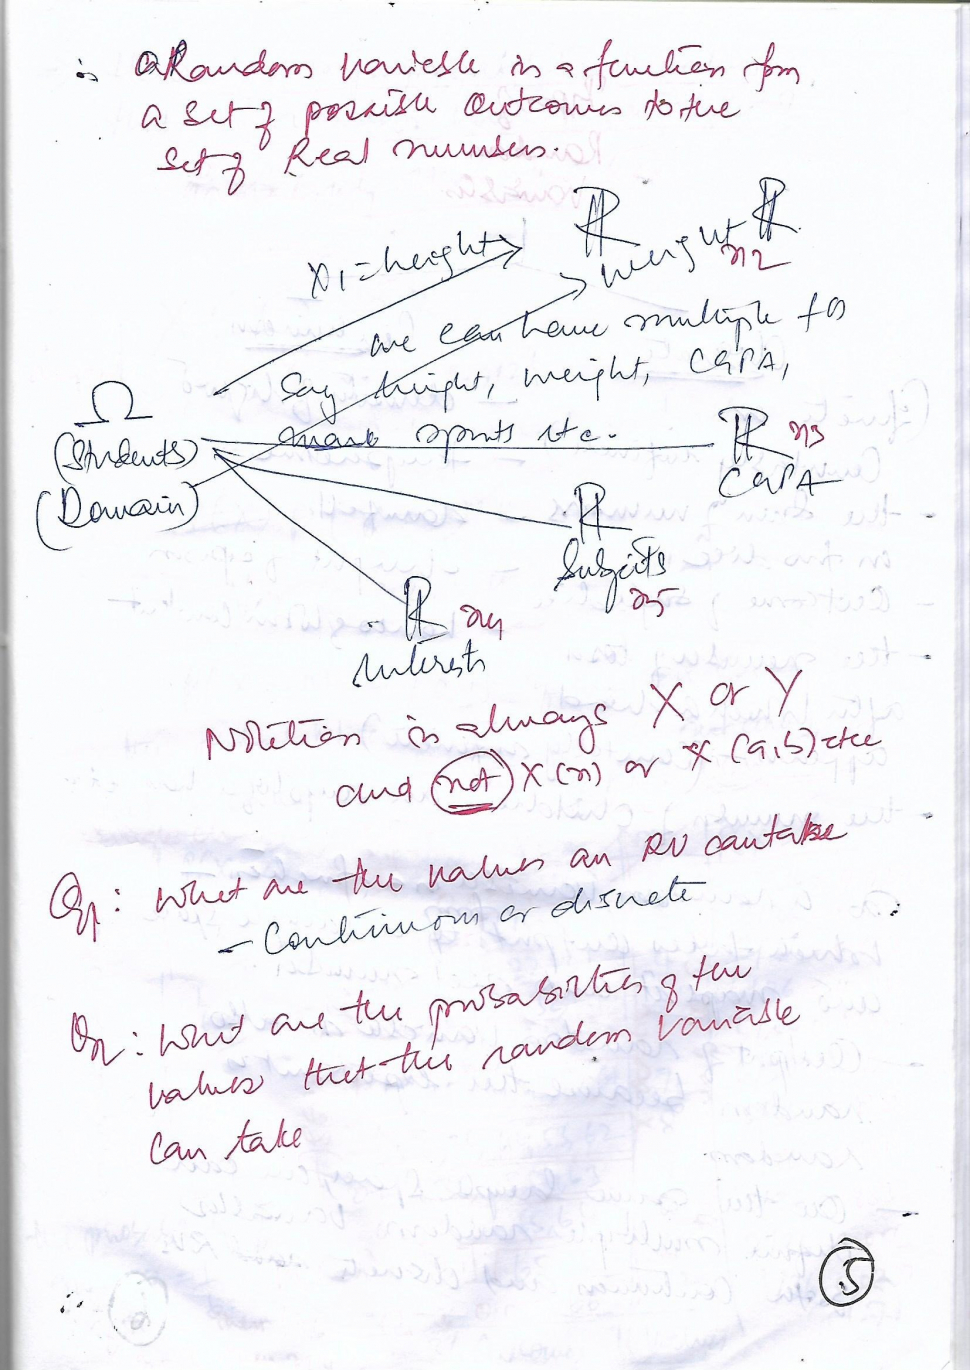 ∴ A Random Variable is a function from
a set of possible outcomes to the
set of Real numbers.
x1 = height
ℝ
weight ℝ
x2
we can have multiple fns
say height, weight, CGPA,
marks sports etc.
Ω
(Students)
(Domain)
ℝ x3
CGPA
ℝ
Subjects
x5
ℝ x4
Interests
Notation is always X or Y
and not X(x) or X(a,b) etc
Q1: What are the values an RV can take
– Continuous or discrete
Q2: What are the probabilities of the
values that the random variable
can take
5